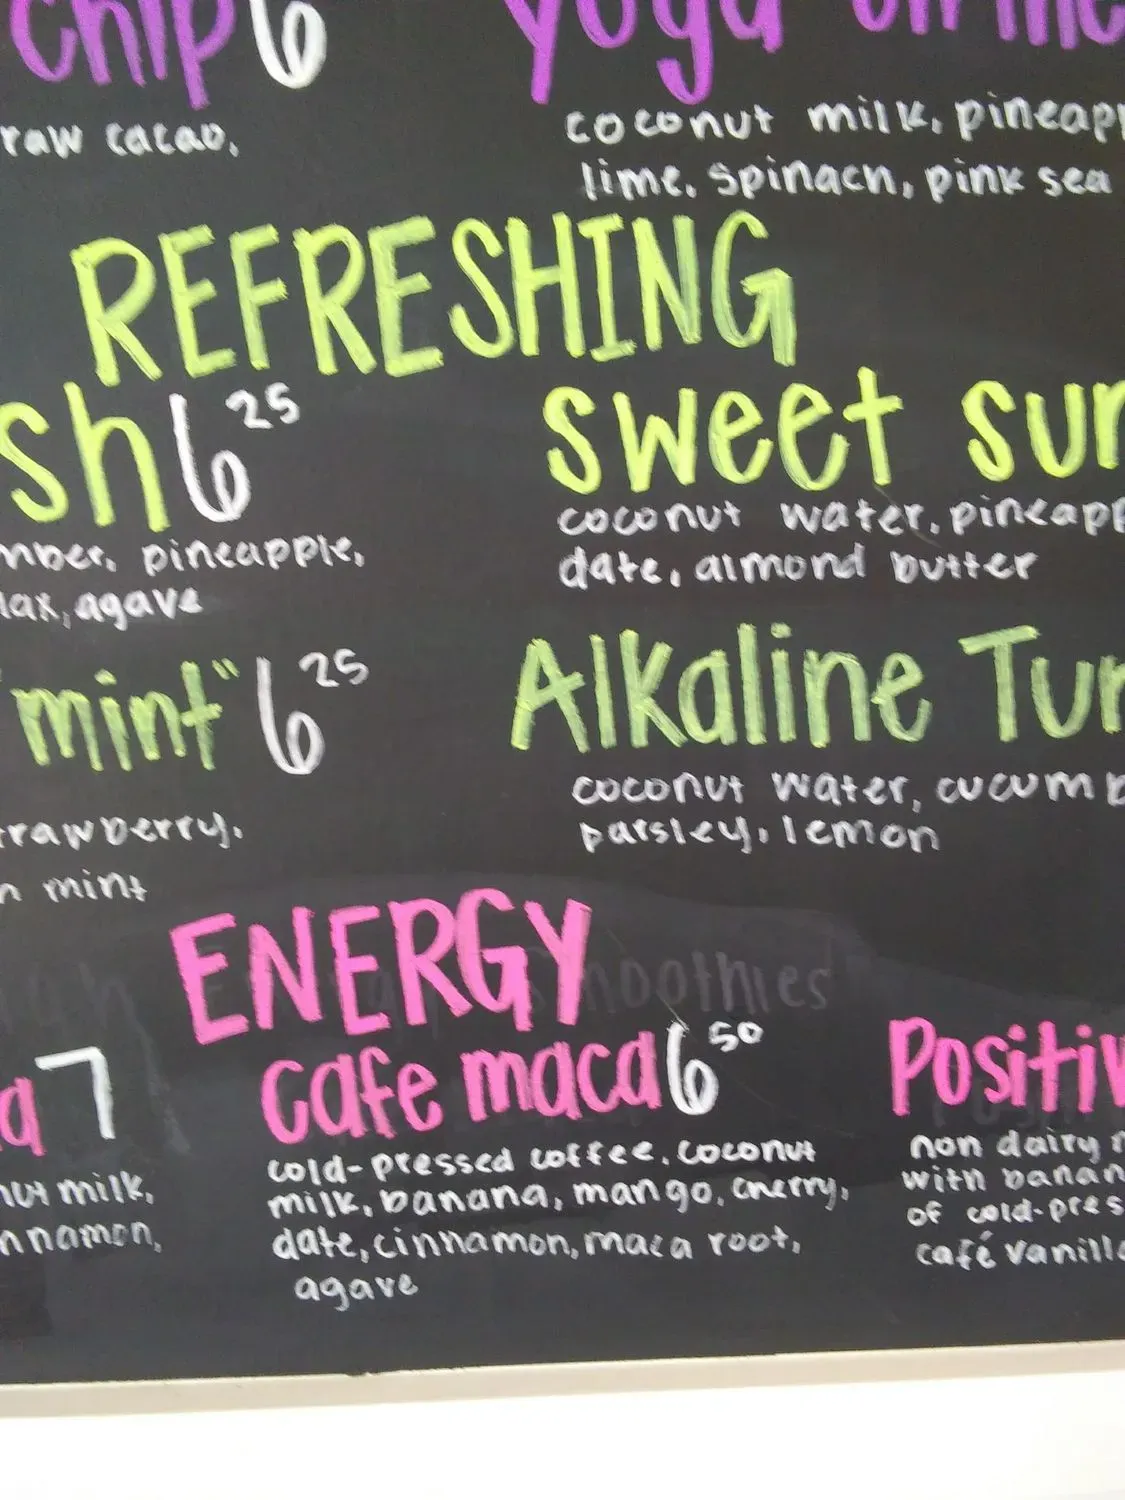 chip 6
raw cacao,
yoga
coconut milk, pineapp
lime, spinach, pink sea
REFRESHING
sh 6 25
mber, pineapple,
lax, agave
sweet sun
coconut water, pineapp
date, almond butter
"mint" 6 25
trawberry,
n mint
Alkaline Tur
coconut water, cucumb
parsley, lemon
ENERGY
Smoothies
a 7
nut milk,
nnamon,
cafe maca 6 50
cold-pressed coffee, coconut
milk, banana, mango, cherry,
date, cinnamon, maca root,
agave
Positiv
non dairy m
with banan
of cold-pres
café vanilla